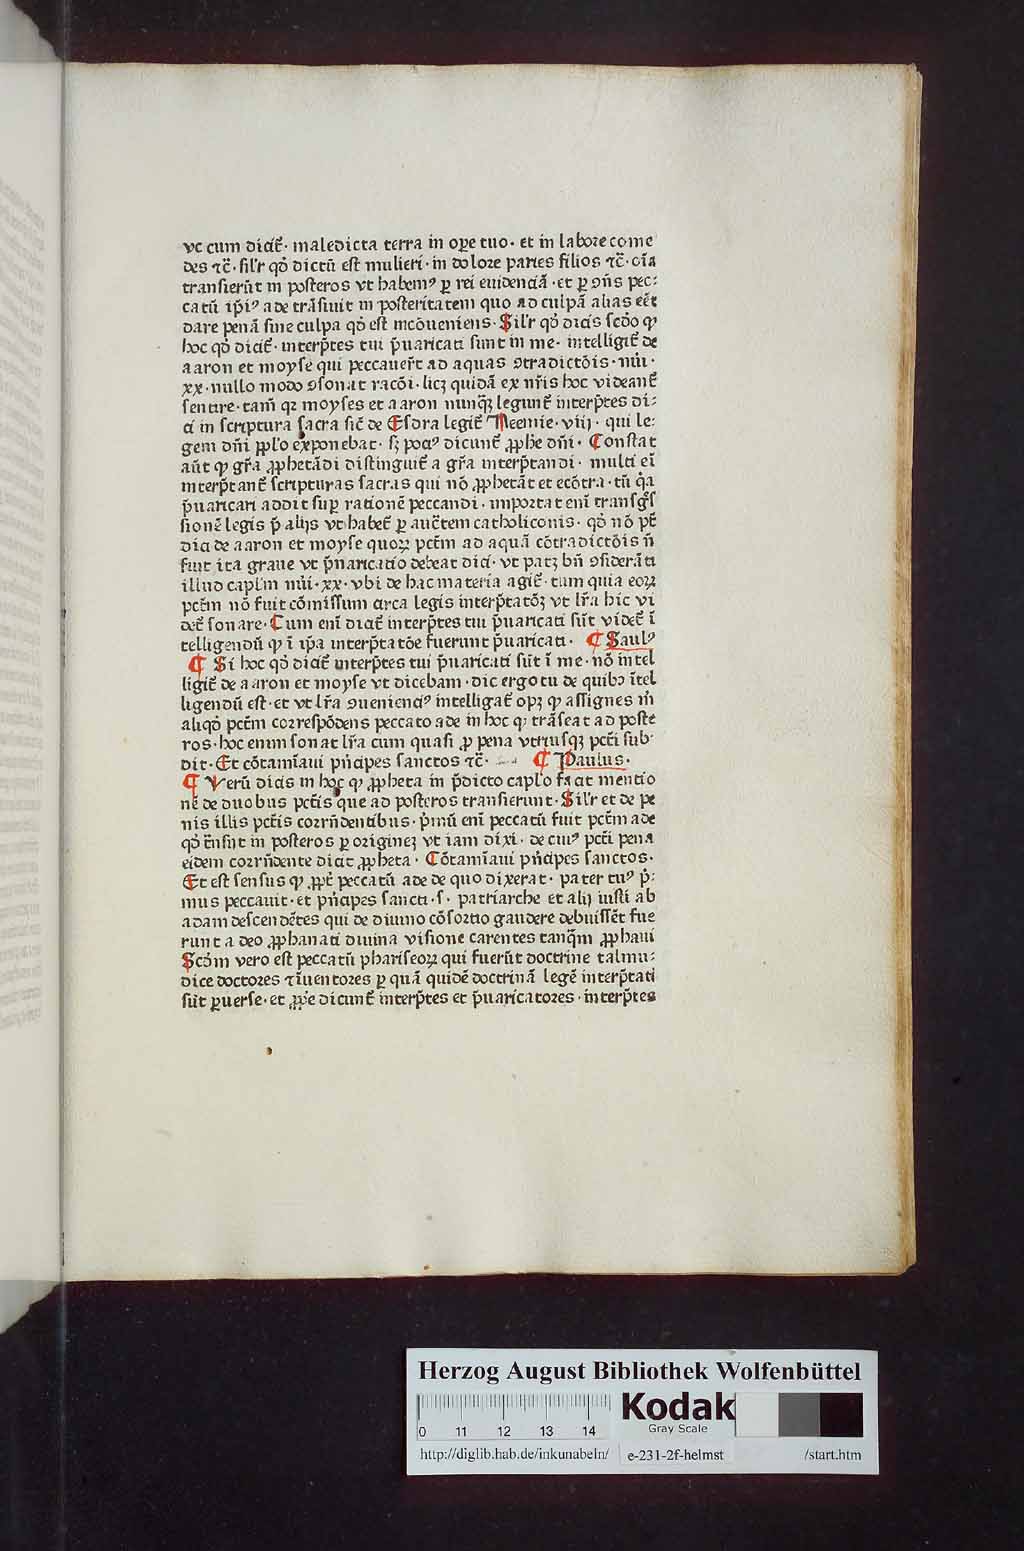 vt cum dicit̃· maledicta terra in oꝑe tuo· et in labore come
des ⁊c̃· sil'r qđ dictū est mulieri· in dolore paries filios ⁊c̃· oĩa
transierūt in posteros vt habemꝰ ꝑ rei euidenciā· et ꝑ ꝯñs pec⸗
catū ip̃iꝰ ade trāsiuit in posteritatem quo ad culpā alias eēt
dare penā sine culpa qđ est incōueniens· Sil'r qđ dicis scđo ꝙ
hoc qđ dicit̃· interp̃tes tui p̃uaricati sunt in me· intelligit̃ de
aaron et moyse qui peccauer̃t ad aquas ꝯtradictōis· nūi·
xx· nullo modo ꝯsonat racōi· licꝫ quidā ex nr̃is hoc videant̃
sentire· tam̄ qꝛ moyses et aaron nunqꝫ legunt̃ interp̃tes di⸗
ci in scriptura sacra sic̃ de Esdra legit̃ Neemie· viij· qui le⸗
gem dñi pp̃lo exponebat· sꝫ pociꝰ dicunt̃ ꝓphe dñi· Constat
aūt ꝙ gr̃a ꝓphetādi distinguit̃ a gr̃a interp̃tandi· multi eī
interp̃tant̃ scripturas sacras qui nō ꝓphetāt et ecōtra· tū q̃a
p̃uaricari addit suꝑ rationē peccandi· importat enī transgr̃s
sionē legis p̃ alijs vt habet̃ ꝑ auc̃tem catholiconis· qđ nō pt̃
dici de aaron et moyse quoꝝ pctm̄ ad aquā cōtradictōis ñ
fuit ita graue vt p̃uaricatio debeat dici· vt patꝫ bñ ꝯsiderāti
illud capl'm nūi· xx· vbi de hac materia agit̃· tum quia eoꝝ
pctm̄ nō fuit cōmissum circa legis interp̃tatōꝫ vt lr̃a hic vi
det̃ sonare· Cum enī dicit̃ interp̃tes tui p̃uaricati sūt videt̃ ī
telligendū ꝙ ī ip̃a interp̃tatōe fuerunt p̃uaricati· ¶ Saulꝰ
¶ Si hoc qđ dicit̃ interp̃tes tui p̃uaricati sūt ī me· nō intel
ligit̃ de aaron et moyse vt dicebam· dic ergo tu de quibꝰ ītel
ligendū est· et vt lr̃a ꝯueniencꝰ intelligat̃ opꝫ ꝙ assignes m̃
aliqđ pctm̄ correspōdens peccato ade in hoc ꝙ trāseat ad poste
ros· hoc enim sonat lr̃a cum quasi ꝓ pena vtriusqꝫ pct̃i sub⸗
dit· Et cōtamīaui pñcipes sanctos ⁊c̃· ¶ Paulus·
¶ Verū dicis in hoc ꝙ ꝓpheta in p̃dicto caplo facit mentio
nē de duobus pct̃is que ad posteros transierunt· Sil'r et de pe
nis illis pct̃is corrñdentibus· p̃mū enī peccatū fuit pctm̄ ade
qđ t̃nsijt in posteros ꝑ origineꝫ vt iam dixi· de cuiꝰ pct̃i pena
eidem corrñdente dicit ꝓpheta· Cōtamīaui pñcipes sanctos·
Et est sensus ꝙ ꝓpt̃ peccatū ade de quo dixerat· pater tuꝰ p̃⸗
mus peccauit· et pñcipes sancti· s· patriarche et alij iusti ab
adam descendētes qui de diuino cōsortio gaudere debuissēt fue
runt a deo ꝓphanati diuina visione carentes tanqm̃ ꝓphani
Scđm vero est peccatū phariseoꝝ qui fuerūt doctrine talmu⸗
dice doctores ⁊ īuentores ꝑ quā quidē doctrinā legē interp̃tati
sūt ꝑuerse· et ꝓp̃e dicunt̃ interp̃tes et p̃uaricatores· interp̃tes
Herzog August Bibliothek Wolfenbüttel
0 11 12 13 14
Kodak
Gray Scale
http://diglib.hab.de/inkunabeln/ e-231-2f-helmst /start.htm